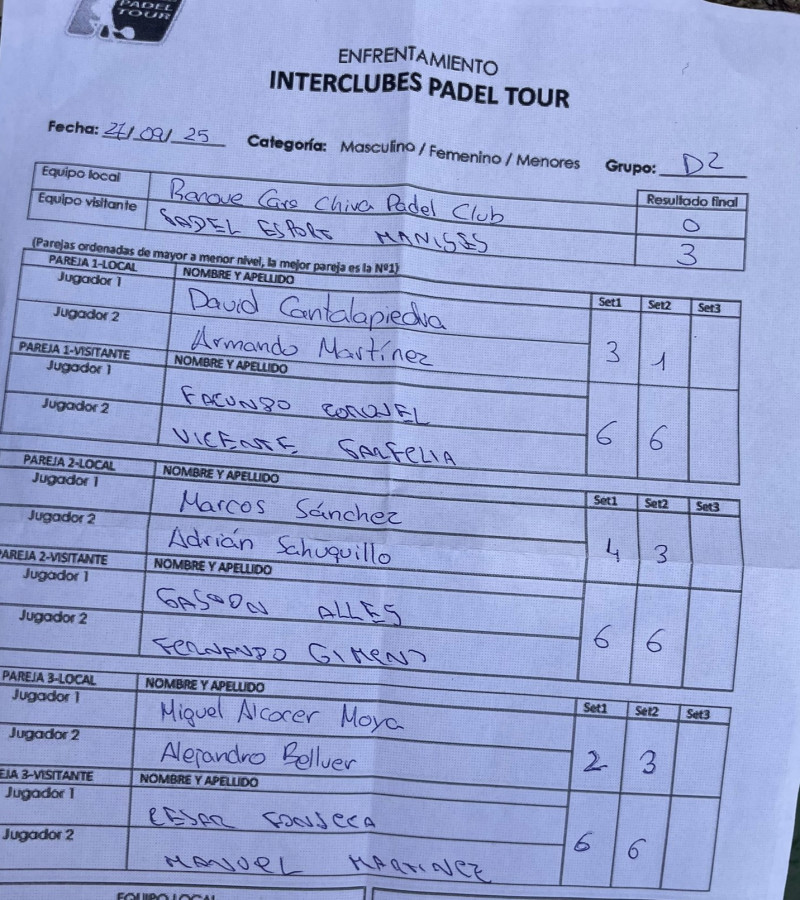 PADEL
TOUR
ENFRENTAMIENTO
INTERCLUBES PADEL TOUR
Fecha: 27/09/25 Categoría: Masculino / Femenino / Menores Grupo: D2
Equipo local Banque Care Chiva Padel Club Resultado final 0
Equipo visitante PADEL ESPORT MANISES 3
(Parejas ordenadas de mayor a menor nivel, la mejor pareja es la Nº1)
PAREJA 1-LOCAL NOMBRE Y APELLIDO Set1 Set2 Set3
Jugador 1 David Cantalapiedra
Jugador 2 Armando Martínez 3 1
PAREJA 1-VISITANTE NOMBRE Y APELLIDO
Jugador 1 FACUNDO CORONEL
Jugador 2 VICENTE 6 6
PAREJA 2-LOCAL NOMBRE Y APELLIDO Set1 Set2 Set3
Jugador 1 Marcos Sánchez
Jugador 2 Adrián Sahuquillo 4 3
PAREJA 2-VISITANTE NOMBRE Y APELLIDO
Jugador 1 GASTON ALLES
Jugador 2 FERNANDO GIMENO 6 6
PAREJA 3-LOCAL NOMBRE Y APELLIDO Set1 Set2 Set3
Jugador 1 Miguel Alcocer Moya
Jugador 2 Alejandro Bellver 2 3
EJA 3-VISITANTE NOMBRE Y APELLIDO
Jugador 1 CESAR FONSECA
Jugador 2 MANUEL MARTINEZ 6 6
EQUIPO LOCAL